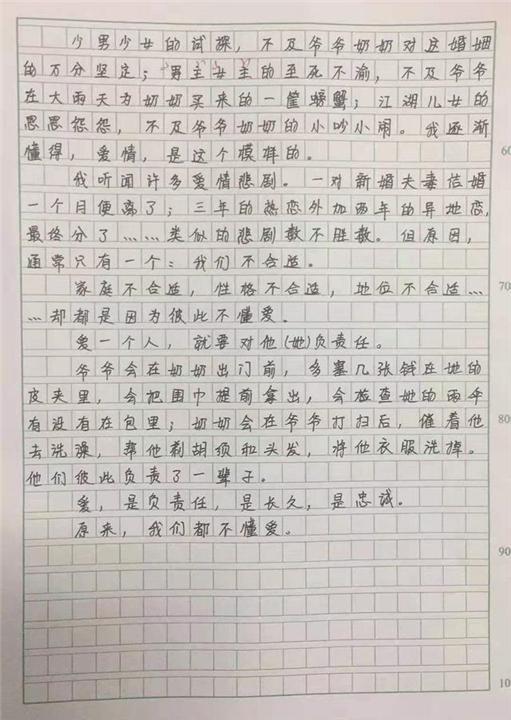 少男少女的试探，不及爷爷奶奶对这婚姻
的万分坚定；男主女主的至死不渝，不及爷爷
在大雨天为奶奶买来的一筐螃蟹；江湖儿女的
恩恩怨怨，不及爷爷奶奶的小吵小闹。我逐渐
懂得，爱情，是这个模样的。
60
我听闻许多爱情悲剧。一对新婚夫妻结婚
一个月便离了；三年的热恋外加两年的异地恋，
最终分了……类似的悲剧数不胜数。但原因，
通常只有一个：我们不合适。
家庭不合适，性格不合适，地位不合适…
70
…却都是因为彼此不懂爱。
爱一个人，就要对他(她)负责任。
爷爷会在奶奶出门前，多塞几张钱在她的
皮夹里，会把围巾提前拿出，会检查她的雨伞
有没有在包里；奶奶会在爷爷打扫后，催着他
80
去洗澡，帮他剃胡须和头发，将他衣服洗掉。
他们彼此负责了一辈子。
爱，是负责任，是长久，是忠诚。
原来，我们都不懂爱。
90
10